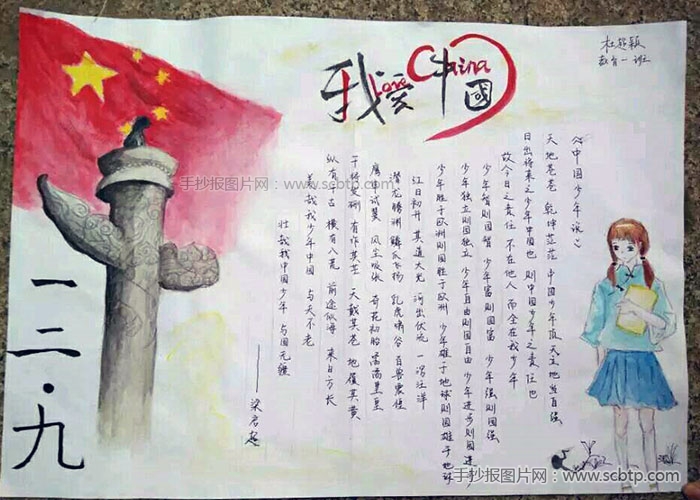 我爱中國
Love China
杜超颖
教育一班
《中国少年说》
天地苍苍 乾坤茫茫 中国少年顶天立地当自强
日出将来之少年中国也 则中国少年之责任也
故今日之责任 不在他人 而全在我少年
少年智则国智 少年富则国富 少年强则国强
少年独立则国独立 少年自由则国自由 少年进步则国进
少年胜于欧洲则国胜于欧洲 少年雄于地球则国雄于地球
红日初升 其道大光 河出伏流 一泻汪洋
潜龙腾渊 鳞爪飞扬 乳虎啸谷 百兽震惶
鹰隼试翼 风尘吸张 奇花初胎 矞矞皇皇
干将发硎 有作其芒 天戴其苍 地履其黄
纵有千古 横有八荒 前途似海 来日方长
美哉我少年中国 与天不老
壮哉我中国少年 与国无疆
——梁启超
一二·九
手抄报图片网：www.scbtp.com
手抄报图片网：www.scbtp.com
手抄报图片网：www.scbtp.com